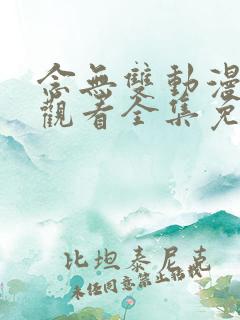 念無雙動漫
觀看全集免
比坦泰尼克
未任同意禁止轉載